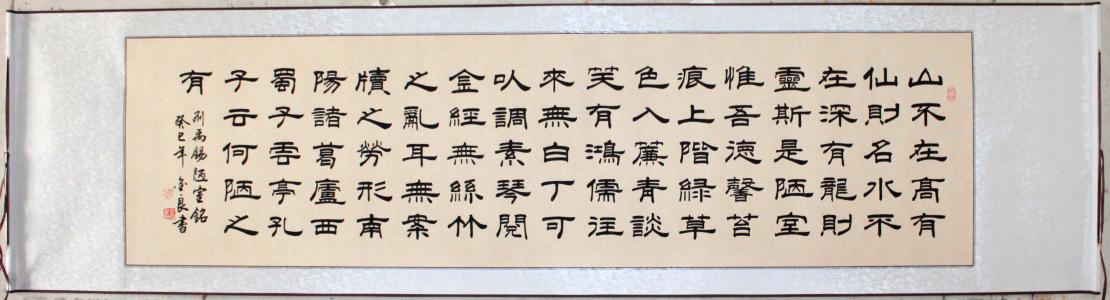 山不在高有
仙則名水不
在深有龍則
靈斯是陋室
惟吾德馨苔
痕上階綠草
色入簾青談
笑有鴻儒往
來無白丁可
以調素琴閱
金經無絲竹
之亂耳無案
牘之勞形南
陽諸葛廬西
蜀子雲亭孔
子云何陋之
有
刘禹錫陋室銘
癸巳年金良書